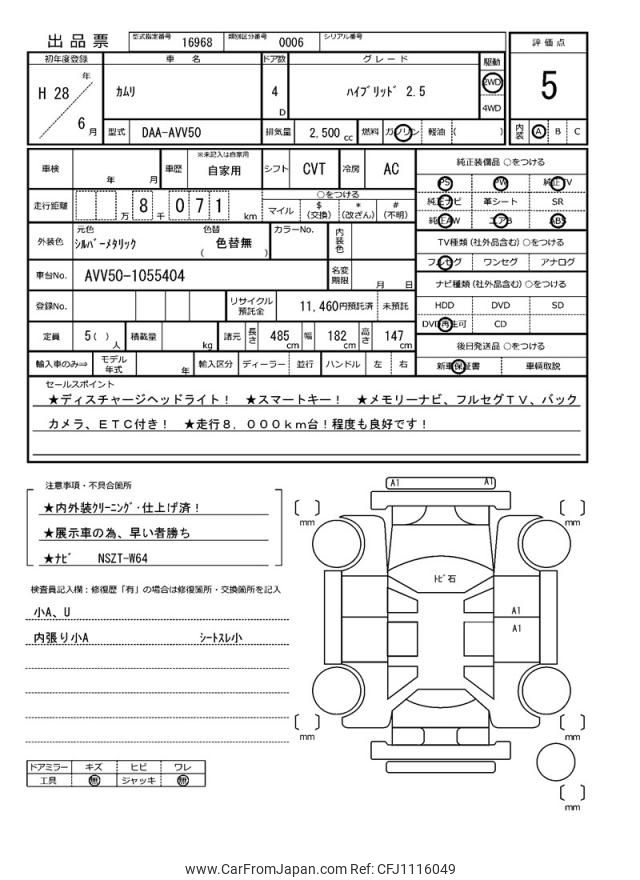 出品票 型式指定番号 16968 類別区分番号 0006 シリアル番号
評価点
5
内装 A B C
初年度登録 車名 ドア数 グレード 駆動
H 28 年 6 月 カムリ 4 D ハイブリッド 2.5 2WD 4WD
型式 DAA-AVV50 排気量 2,500 cc 燃料 ガソリン 軽油 ( )
車検 年 月 車歴 ※未記入は自家用 自家用 シフト CVT 冷房 AC
走行距離 万 8 千 0 7 1 km ○をつける
マイル $ (交換) * (改ざん) # (不明)
外装色 元色 シルバーメタリック 色替 ( 色替無 ) カラーNo. 内装色
車台No. AVV50-1055404 名変期限 月 日
登録No. リサイクル預託金 11,460円預託済 未預託
定員 5( ) 人 積載量 kg 諸元 長さ 485 cm 幅 182 cm 高さ 147 cm
輸入車のみ⇒ モデル年式 年 輸入区分 ディーラー 並行 ハンドル 左 右
純正装備品 ○をつける
PS PW 純正TV
純正ナビ 革シート SR
純正AW エアB ABS
TV種類 (社外品含む) ○をつける
フルセグ ワンセグ アナログ
ナビ種類 (社外品含む) ○をつける
HDD DVD SD
DVD再生可 CD
後日発送品 ○をつける
新車保証書 車輌取説
セールスポイント
★ディスチャージヘッドライト！ ★スマートキー！ ★メモリーナビ、フルセグTV、バック
カメラ、ETC付き！ ★走行8，000km台！程度も良好です！
注意事項・不具合箇所
★内外装クリーニング・仕上げ済！
★展示車の為、早い者勝ち
★ナビ NSZT-W64
検査員記入欄：修復歴「有」の場合は修復箇所・交換箇所を記入
小A、U
内張り小A シートスレ小
ドアミラー キズ ヒビ ワレ
工具 無 ジャッキ 無
A1 A1
mm mm
トビ石
A1
A1
mm mm
mm
www.CarFromJapan.com Ref: CFJ1116049